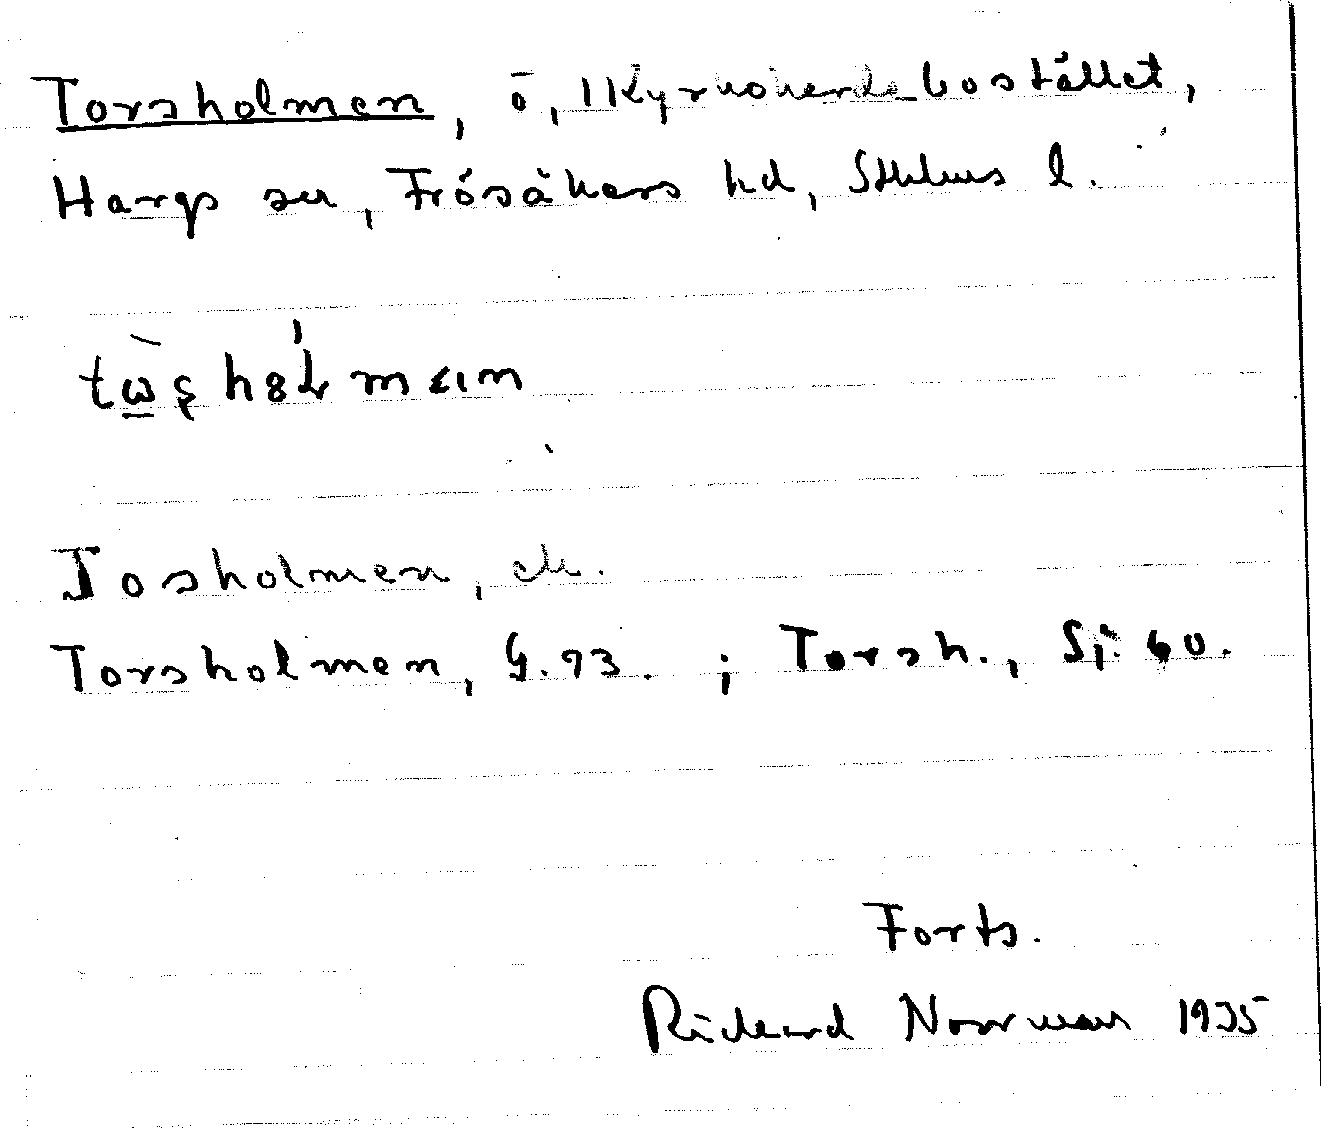 Torsholmen, ö, 1 Kyrkoherdebostället,
Hargs sn, Frösåkers hd, Sthlms l.
Tosholmen, ek.
Torsholmen, G. 93. ; Torsh., Sj. 60.
Forts.
Richard Norrman 1935